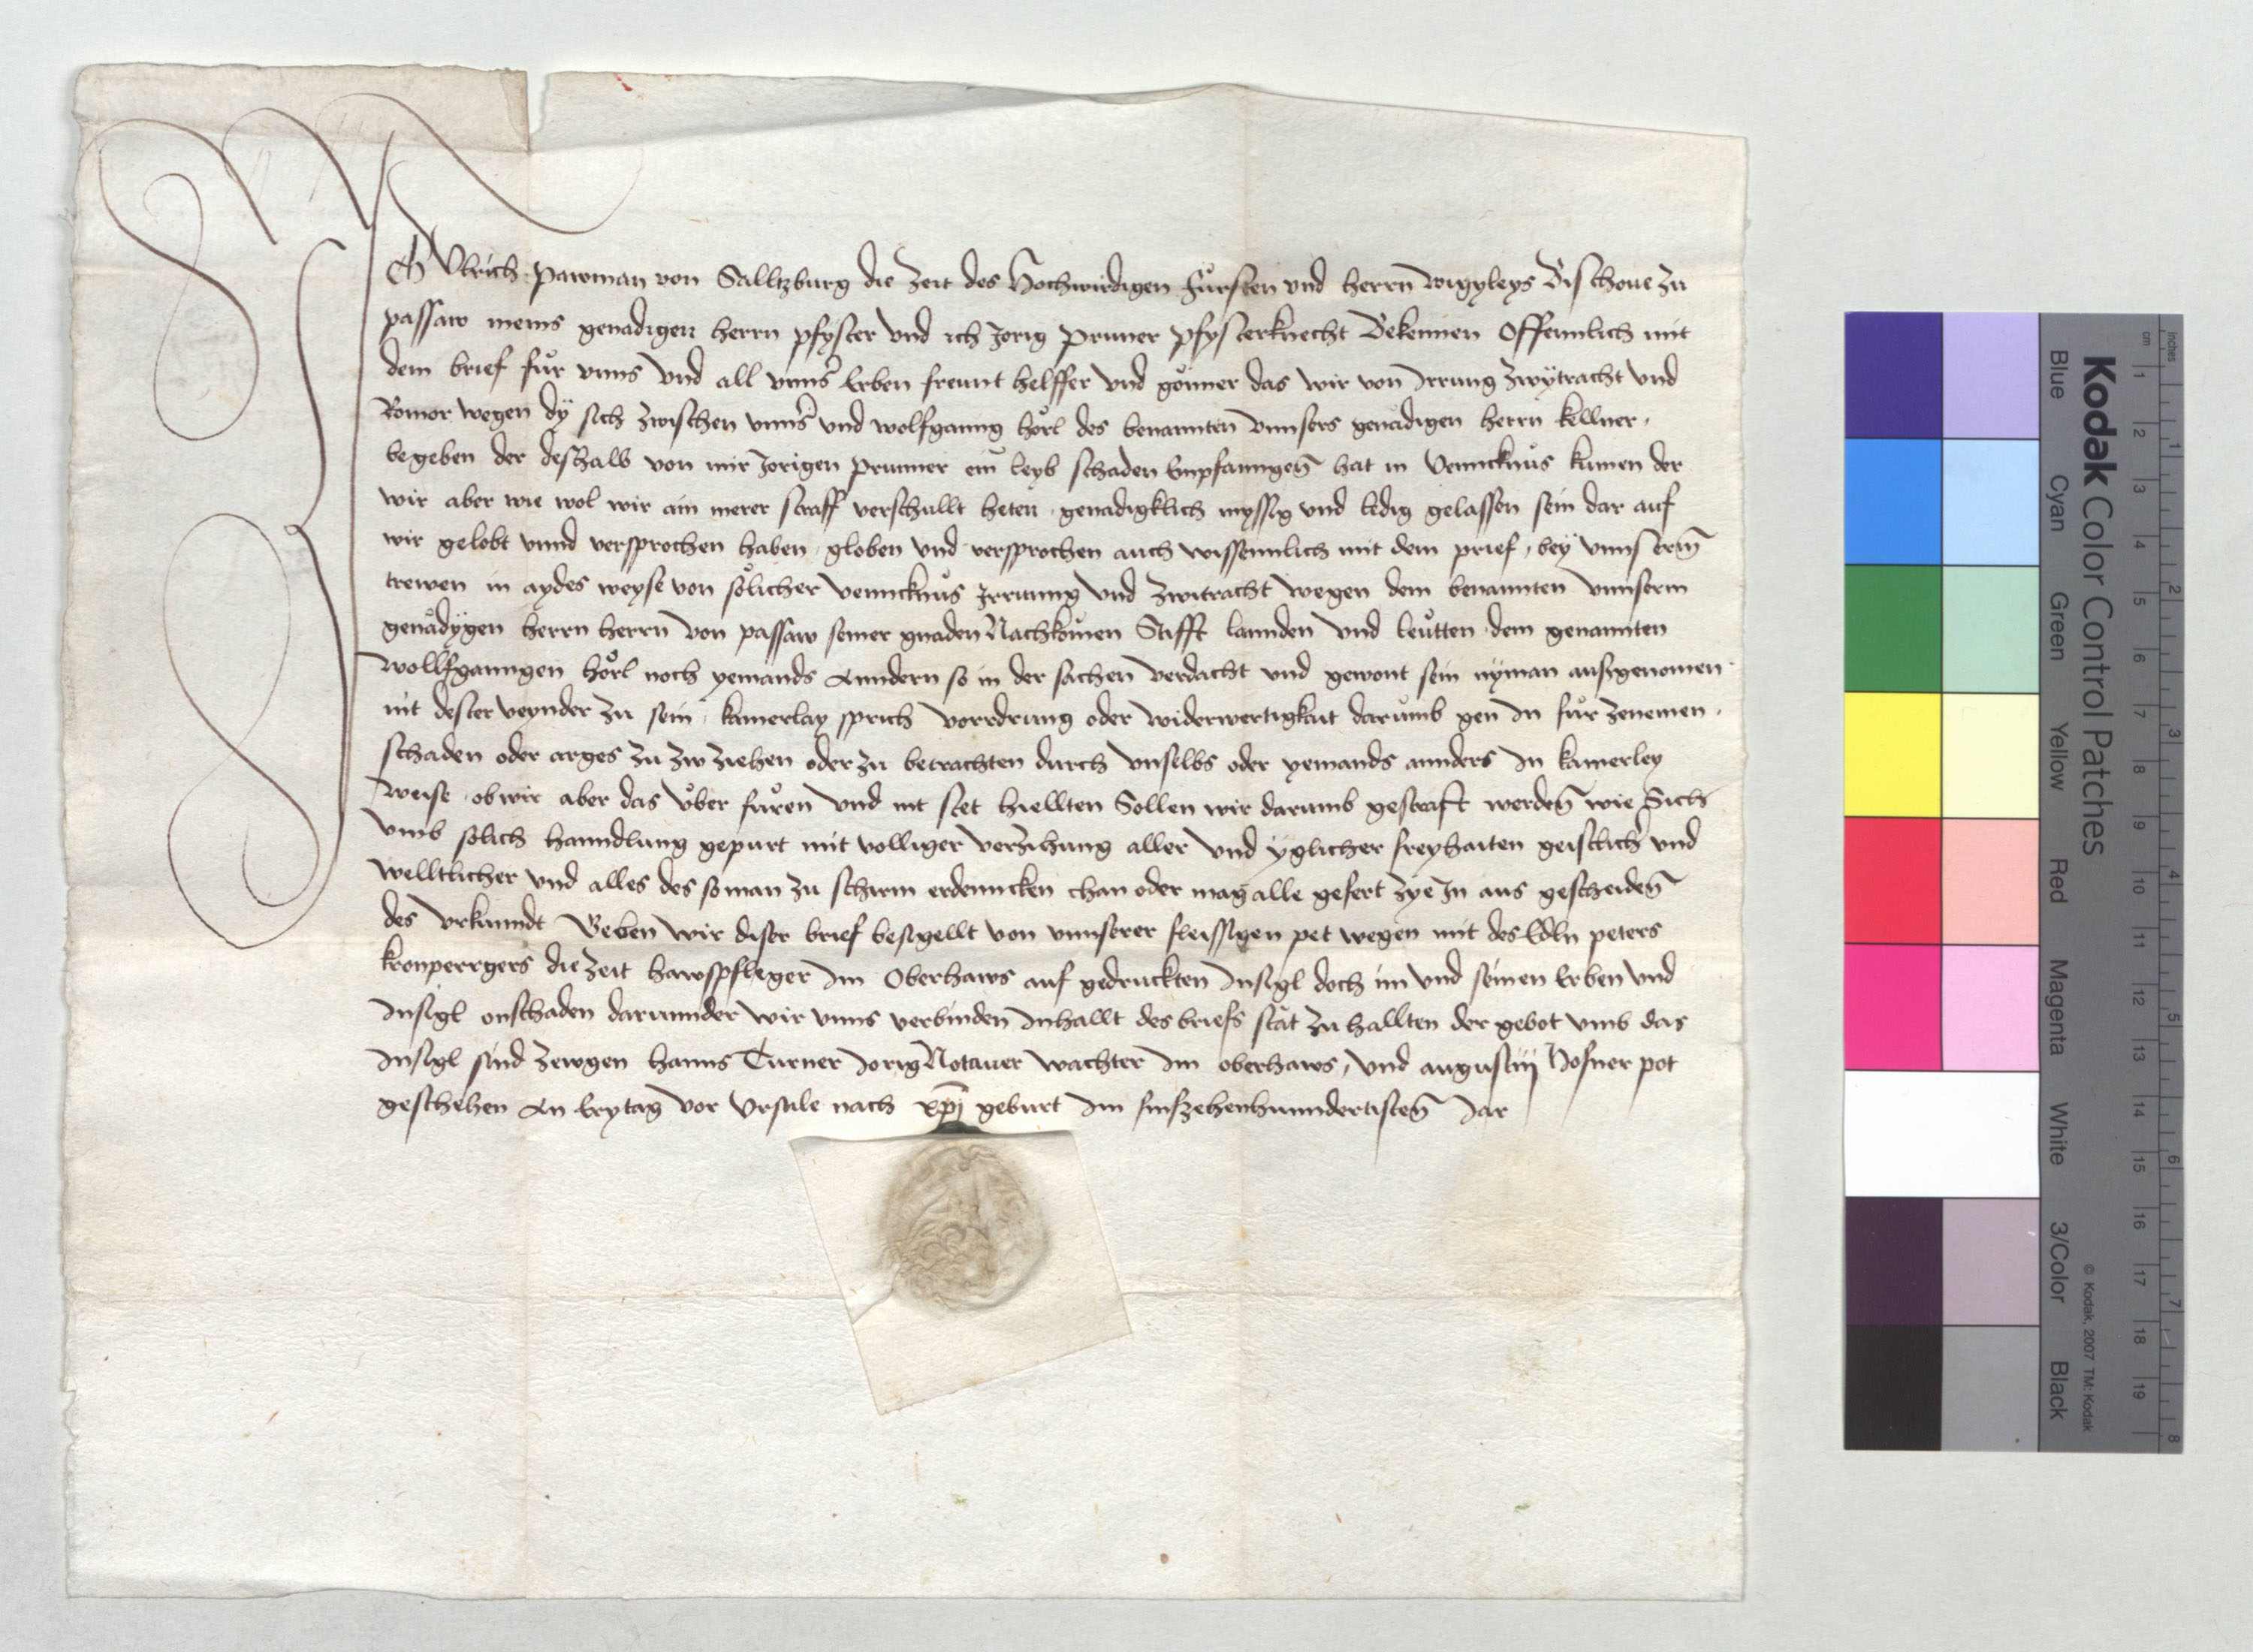 Ich Ulrich Pawman von Salltzburg die zeit des Hochwirdigen Fůrsten vnd herrn wigyleys Bischoue zu
passaw meins genadigen herrn pfyster vnd ich Jorig Pruner pfysterknecht Bekennen Offennlich mit
dem brief fůr vnns vnd all vnns̄ Erben freunt helffer vnd gönner das wir von Irrung zwÿtracht vnd
Romor wegen dÿ sich zwischen vnns̄ vnd wolfganng hörl des benannten̄ vnnsers genädigen herrn kellner,
begeben der deshalb von mir Jorigen prunner ein leyb schaden Empfanngen̄ hat in venncknůs kumen der
wir aber wie wol wir ain merer straff verschullt heten, genadigklich myssig vnd ledig gelassen sein dar auf
wir gelobt vnnd versprochen haben, globen vnd versprochen auch wissennlich mit dem prief, bey vnnserm̄
trewen in aydes weyse von sölicher venncknůs Irrunng vnd zwitracht wegen dem benannten vnnserm
genådÿgen herrn herrn von passaw seiner gnaden Nachkömen Stifft lannden vnd leůtten dem genannten
wollfganngen hörl noch yemands Anndern so in der sachen verdacht vnd gewont sein nÿman ausgenomen
nit dester veynder zu sein, kainerlay sprüch vorrdrung oder widerwertigkait darůmb gen In fůr zenemen,
schaden oder arges zu zw ziehen oder zu betrachten durch vnselbs oder yemands annders In kainerley
weise, ob wir aber das ůber fůren vnd nit stet hiellten Sollen wir darumb gestraft werden̄ wie Sich
vmb solich hanndlung gepurt mit volliger verzihung aller vnd yglicher freyhaiten geistlich̄ vnd
welltlicher vnd alles des so man zu schirm erdenncken chan oder mag alle gefert zye In aus gescheiden̄
des vrkunndt Geben wir diser brief besigellt von vnnserer fleissigen pet wegen mit des Edln peters
kronperrgers die zeit hawspfleger Im Oberhaws auf gedruckten Insigl doch im vnd seinen Erben vnd
Insigl onschaden darunnder wir vnns verbinden Inhallt des briefs stät zu hallten der gebot vmb das
Insigl sind zewgen hanns Turner Jorig Notauer wachter Im oberhaws, vnd augustin Hofner pot
geschehen An Erytag vor Vrsule nach xp̄i geburt Im funfzehenhunndertisten̄ Jar
Kodak Color Control Patches
Blue Cyan Green Yellow Red Magenta White 3/Color Black
© Kodak, 2007 TM: Kodak
cm 1 2 3 4 5 6 7 8 9 10 11 12 13 14 15 16 17 18 19
inches 1 2 3 4 5 6 7 8